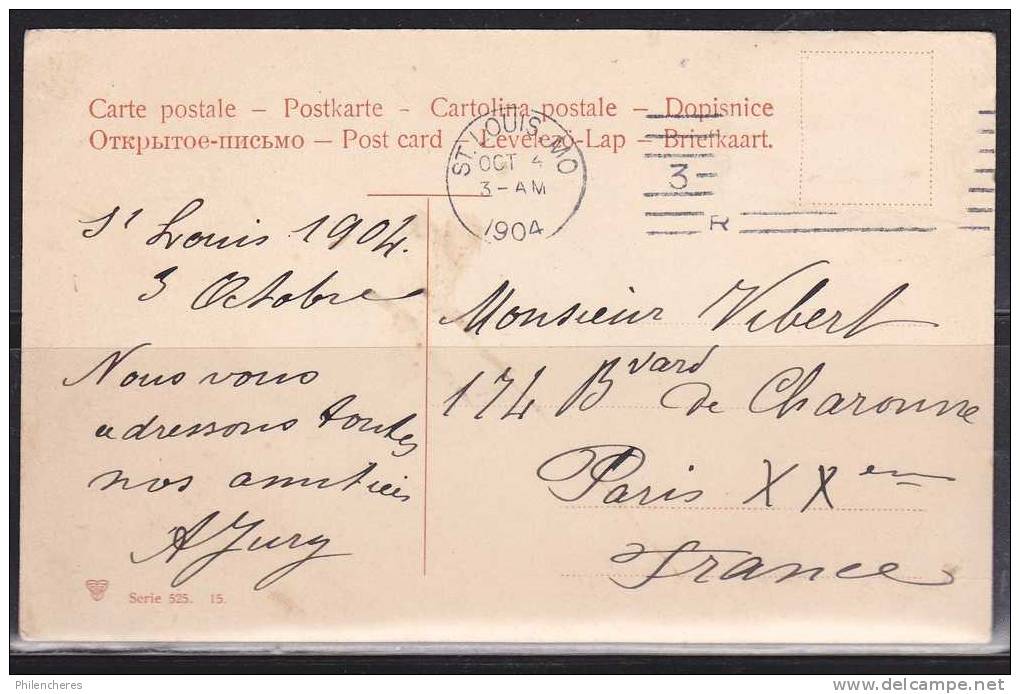 Carte postale – Postkarte - Cartolina postale – Dopisnice
Открытое-письмо – Post card – Levelező-Lap – Briefkaart.
ST. LOUIS, MO
OCT 4
3-AM
1904
3
R
St Louis 1904.
3 Octobre
Nous vous
adressons toutes
nos amitiés
A Jury
Monsieur Vibert
174 Bvard de Charonne
Paris XXem
France
Serie 525. 15.
Philencheres
www.delcampe.net